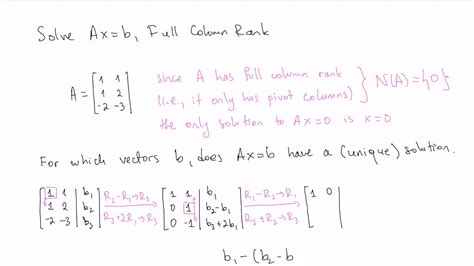 Solve Ax=b, Full Column Rank
A = [1 1
1 2
-2 -3]
since A has full column rank
(i.e., it only has pivot columns)
the only solution to Ax=0 is x=0
} N(A)={0}
For which vectors b, does Ax=b have a (unique) solution.
[1 1 | b₁
1 2 | b₂
-2 -3 | b₃]
R₂-R₁→R₂
R₃+2R₁→R₃
[1 1 | b₁
0 1 | b₂-b₁
0 -1 | b₃+2b₁]
R₁-R₂→R₁
R₃+R₂→R₃
[1 0
b₁-(b₂-b